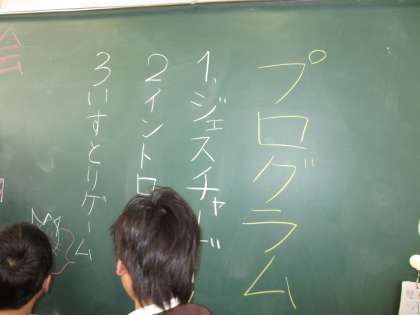 プログラム
1.ジェスチャーゲー
2 イントロ
3 いすとりゲーム